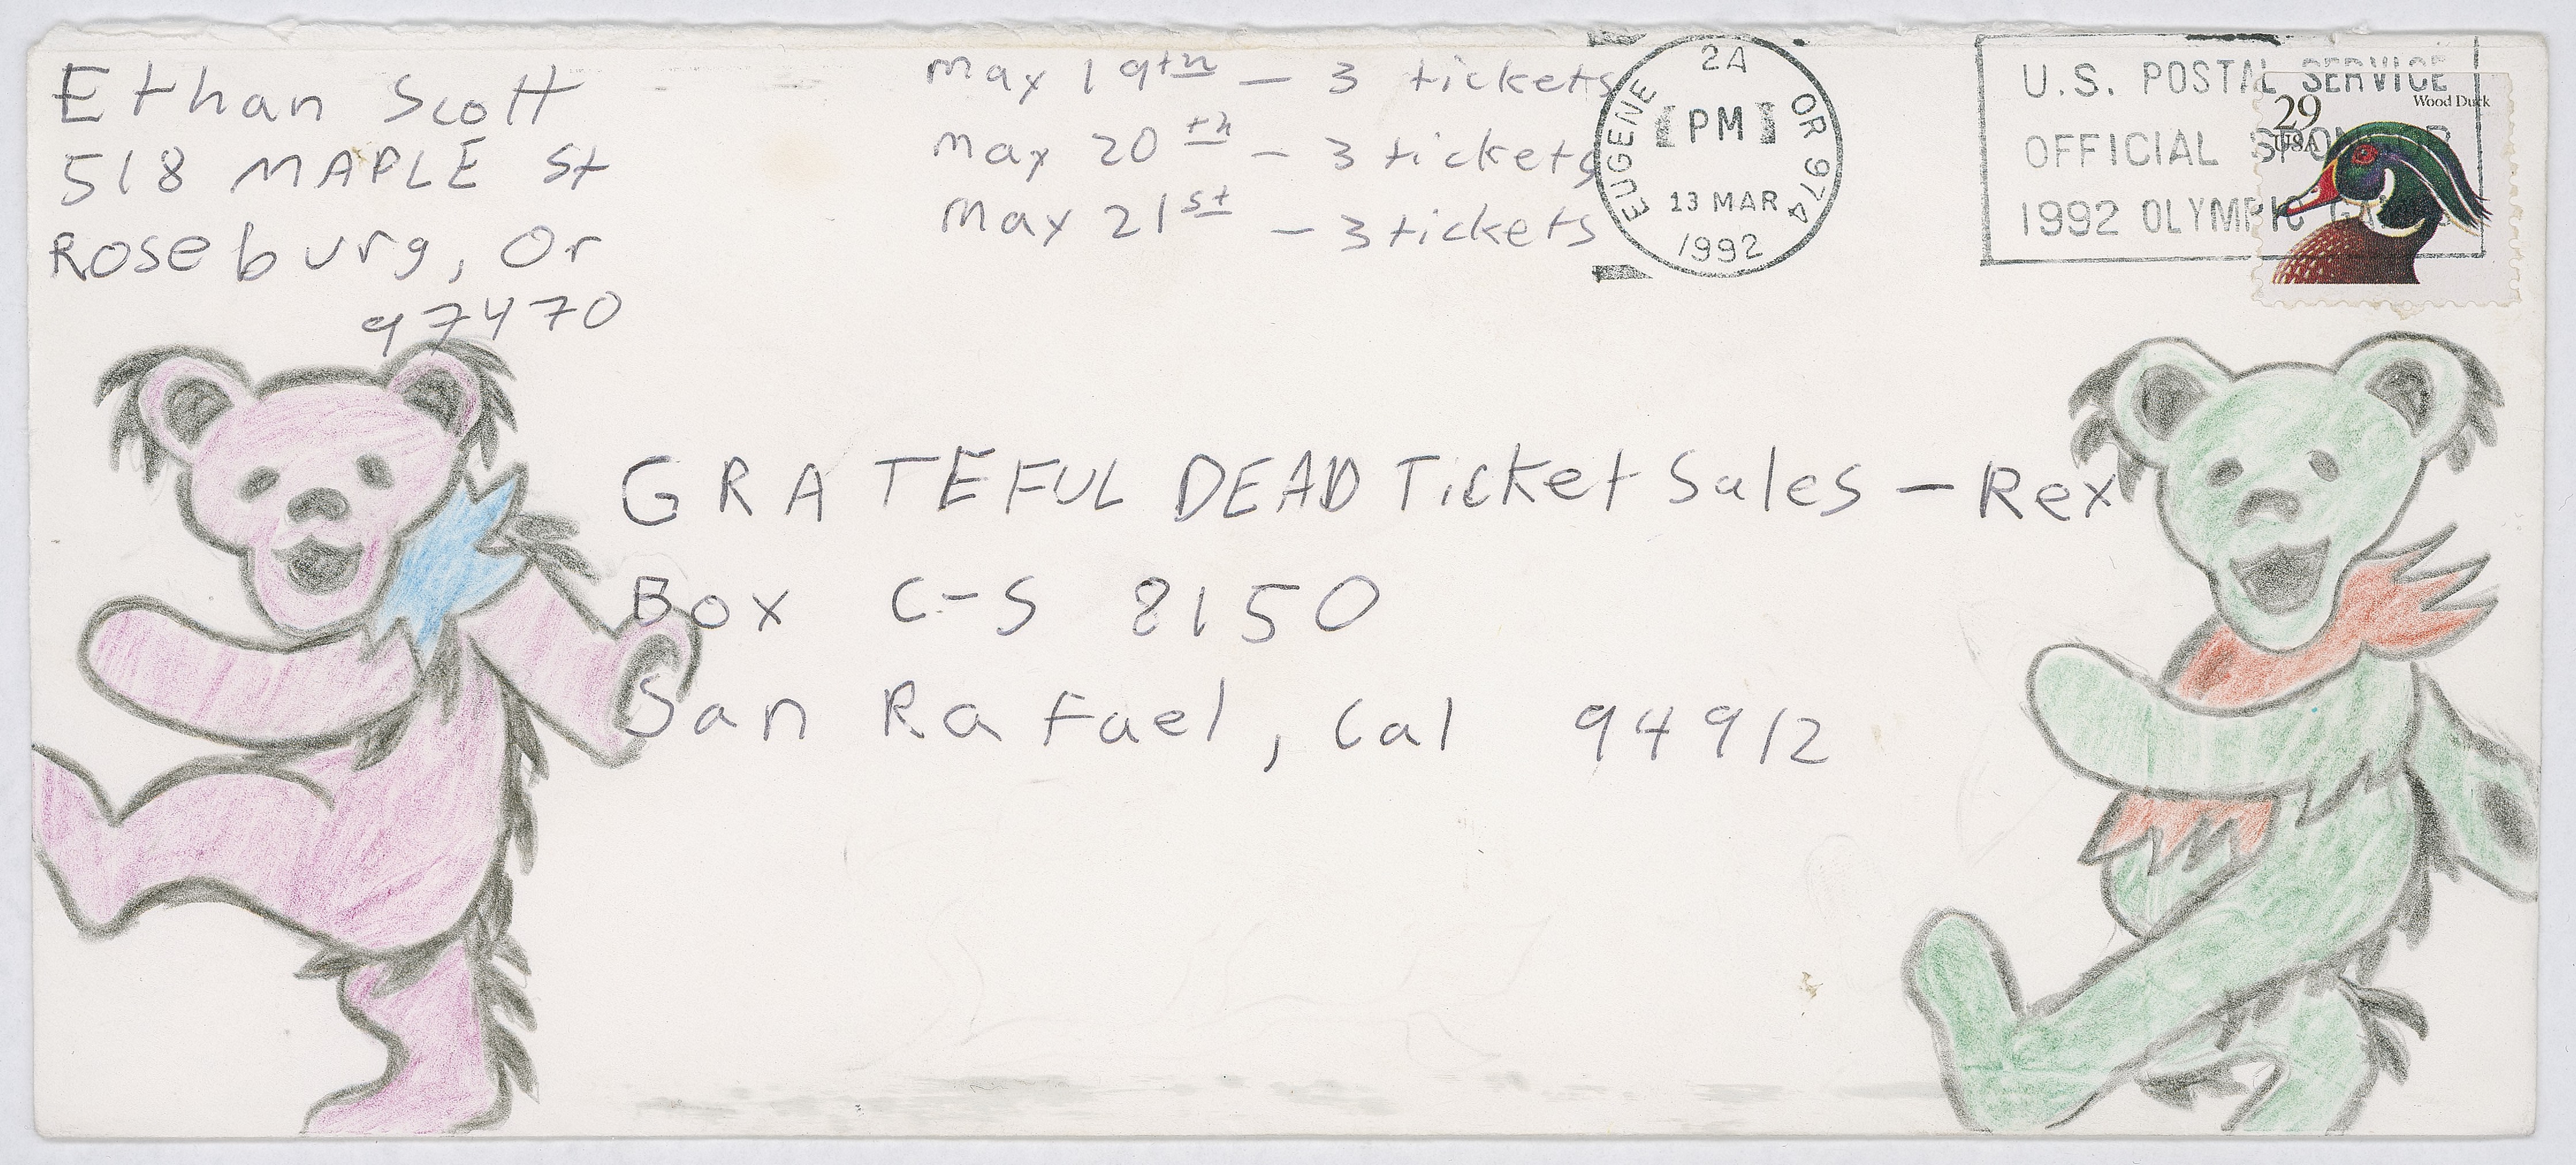 Ethan Scott
518 MAPLE St
Roseburg, Or
97470
May 19th - 3 tickets
May 20th - 3 tickets
May 21st - 3 tickets
2A
EUGENE OR 974
PM
13 MAR
1992
U.S. POSTAL SERVICE
OFFICIAL SPONSOR
1992 OLYMPIC GAMES
29
USA
Wood Duck
GRATEFUL DEAD Ticket Sales - Rex
Box C-S 8150
San Rafael, Cal 94912